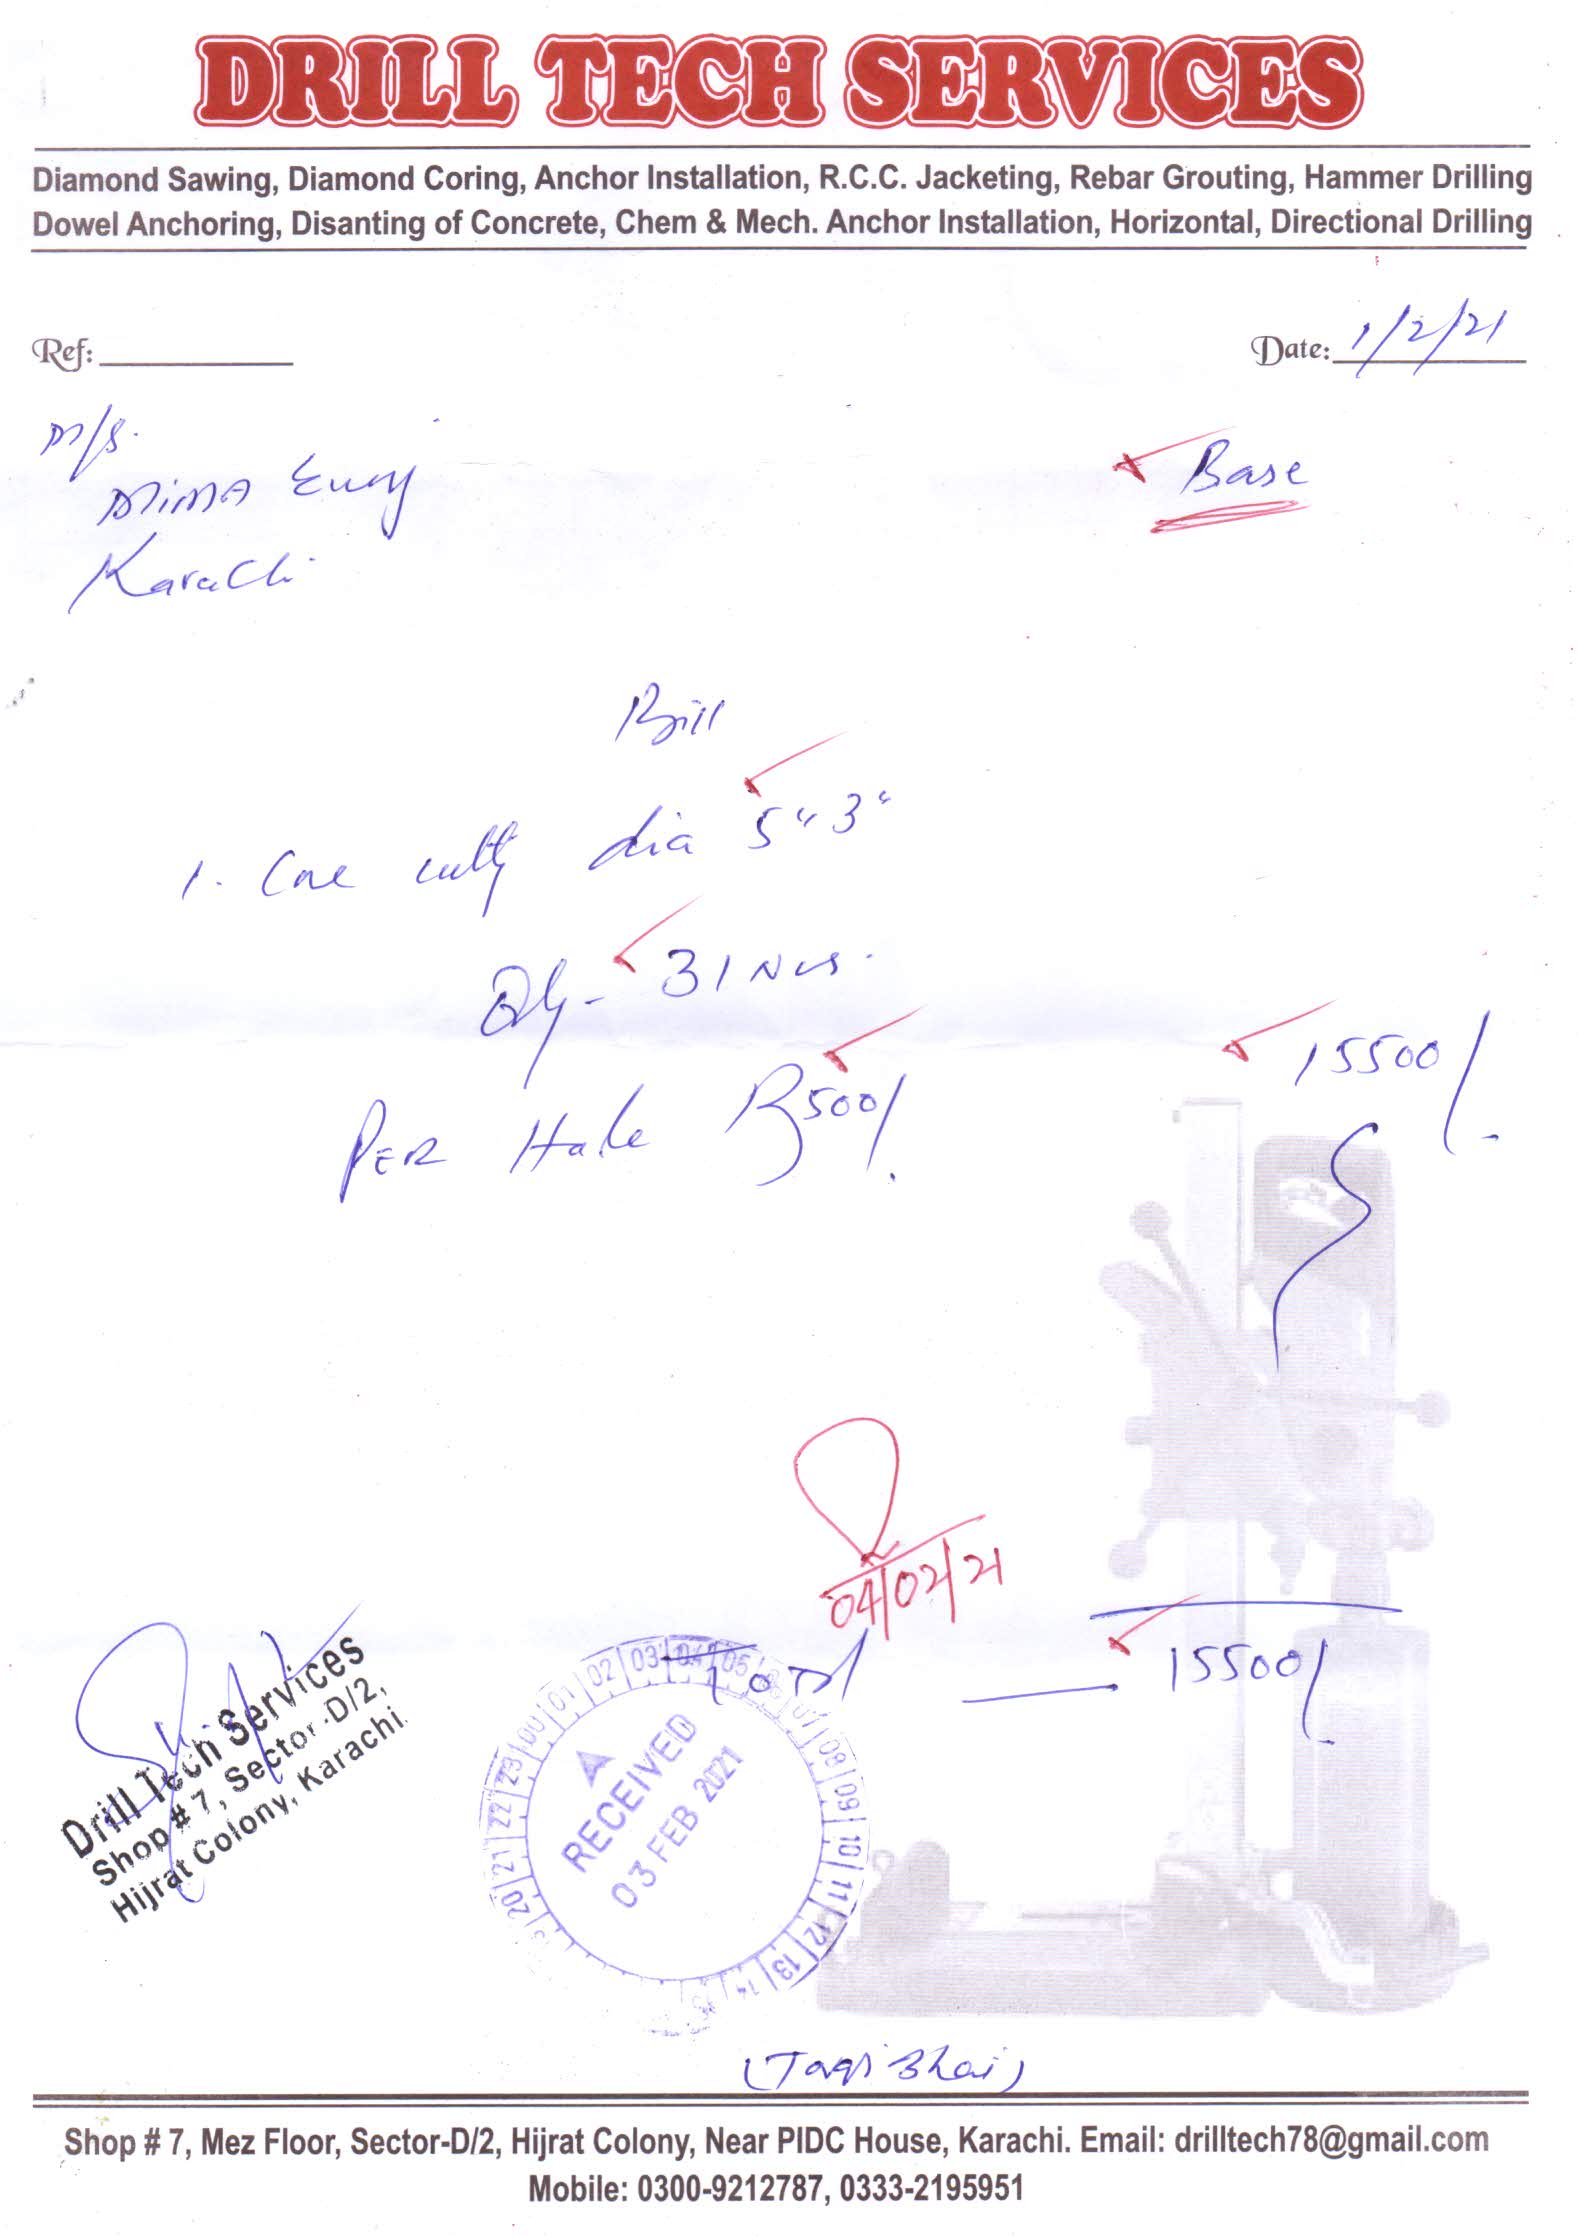 DRILL TECH SERVICES
Diamond Sawing, Diamond Coring, Anchor Installation, R.C.C. Jacketing, Rebar Grouting, Hammer Drilling
Dowel Anchoring, Disanting of Concrete, Chem & Mech. Anchor Installation, Horizontal, Directional Drilling
Ref:
Date: 1/2/21
M/S.
Base
Karachi
Bill
1. Core dia 5" 3"
Qty - 31 Nos.
15500/-
PER Hole Rs 500/.
04/02/21
Total 15500/-
Drill Tech Services
Shop # 7, Sector-D/2,
Hijrat Colony, Karachi.
00 01 02 03 04 05 06 07 08 09 10 11 12 13 14 20 21 22 23
RECEIVED
03 FEB 2021
(Taqi Bhai)
Shop # 7, Mez Floor, Sector-D/2, Hijrat Colony, Near PIDC House, Karachi. Email: drilltech78@gmail.com
Mobile: 0300-9212787, 0333-2195951